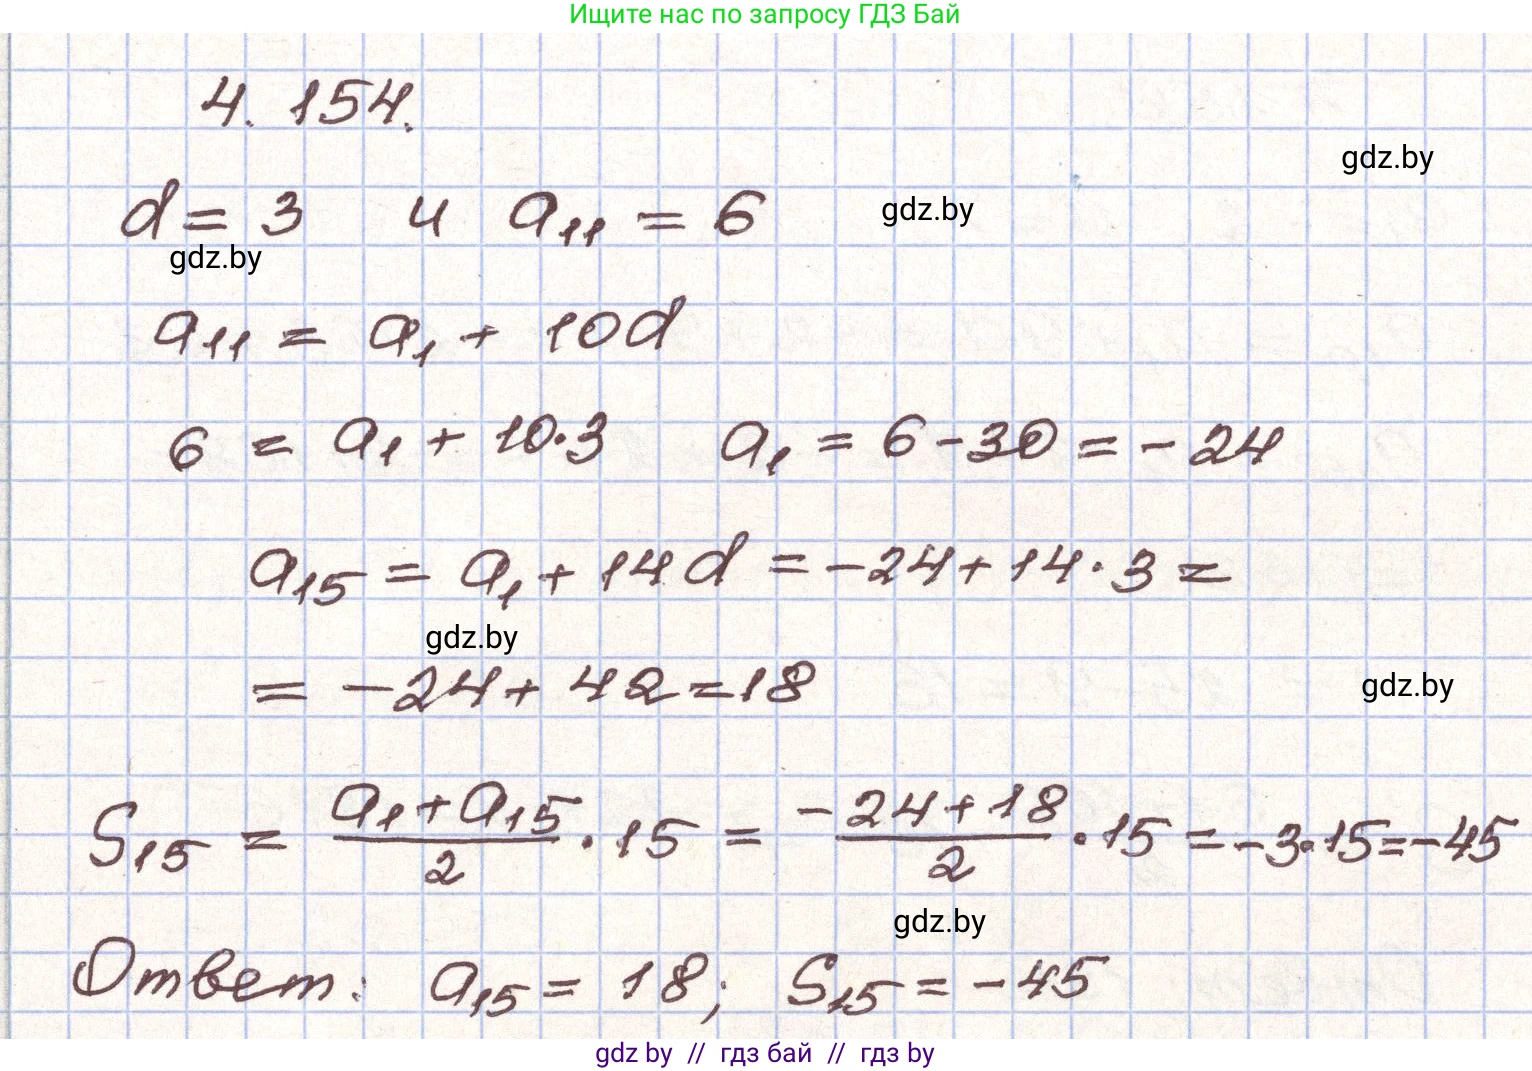 Ищите нас по запросу ГДЗ Бай
4. 154.
gdz.by
d = 3 и a₁₁ = 6
gdz.by
gdz.by
a₁₁ = a₁ + 10d
6 = a₁ + 10·3 a₁ = 6 - 30 = - 24
a₁₅ = a₁ + 14d = - 24 + 14 · 3 =
gdz.by
= - 24 + 42 = 18
gdz.by
S₁₅ = (a₁ + a₁₅)/2 · 15 = (- 24 + 18)/2 · 15 = - 3 · 15 = - 45
gdz.by
Ответ: a₁₅ = 18; S₁₅ = - 45
gdz by // гдз бай // гдз by